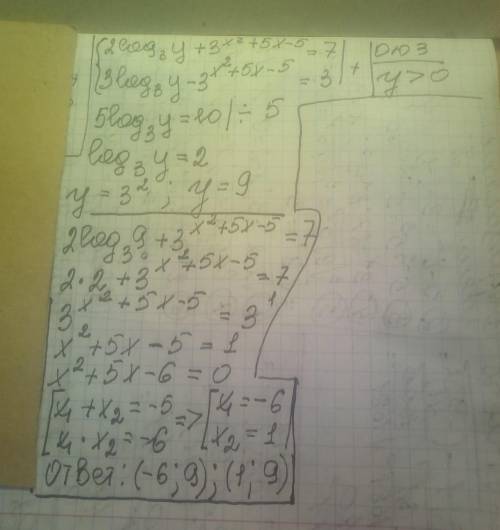 {2log₃y + 3^(x²+5x-5) = 7 | + | ОЮЗ
{3log₃y - 3^(x²+5x-5) = 3 | y > 0
5log₃y = 10 | ÷ 5
log₃y = 2
y = 3² ; y = 9
2log₃9 + 3^(x²+5x-5) = 7
2·2 + 3^(x²+5x-5) = 7
3^(x²+5x-5) = 3¹
x² + 5x - 5 = 1
x² + 5x - 6 = 0
[x₁ + x₂ = -5 => [x₁ = -6
[x₁ · x₂ = -6 [x₂ = 1
Ответ: (-6; 9); (1; 9)